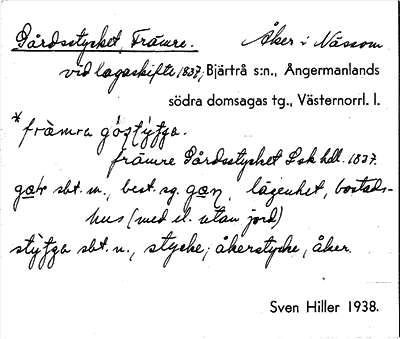 Gårdsstycket, Främre. Åker i Nässom
vid lagaskifte 1837, Bjärtrå s:n., Ångermanlands
södra domsagas tg., Västernorrl. l.
*främra
främre Gårdsstycket Lsk hdl. 1837.
sbst. m., best. sg. lägenhet, bostads-
hus (med el. utan jord)
sbst. n., stycke; åkerstycke, åker.
Sven Hiller 1938.